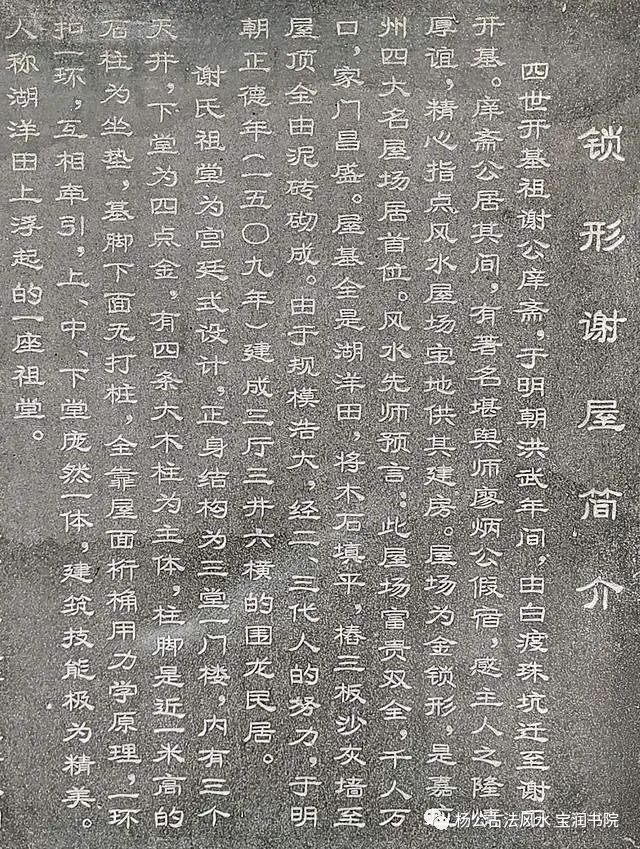 锁形谢屋简介
四世开基祖谢公庠斋，于明朝洪武年间，由白渡珠坑迁至谢田
开基。庠斋公居其间，有著名堪舆师廖炳公假宿，感主人之隆情
厚谊，精心指点风水屋场宝地供其建房。屋场为金锁形，是嘉应
州四大名屋场居首位。风水先师预言：此屋场富贵双全，千人万
口，家门昌盛。屋基全是湖洋田，将木石填平，椿三板沙灰墙至
屋顶全由泥砖砌成。由于规模浩大，经二、三代人的努力，于明
朝正德年（一五〇九年）建成三厅三井六横的围龙民居。
谢氏祖堂为宫廷式设计，正身结构为三堂一门楼，内有三个
天井，下堂为四点金，有四条大木柱为主体，柱脚是近一米高的
石柱为坐垫，基脚下面无打桩，全靠屋面桁桷用力学原理，一环
扣一环，互相牵引，上、中、下堂庞然一体，建筑技能极为精美。
人称湖洋田上浮起的一座祖堂。
杨公古法风水 宝润书院